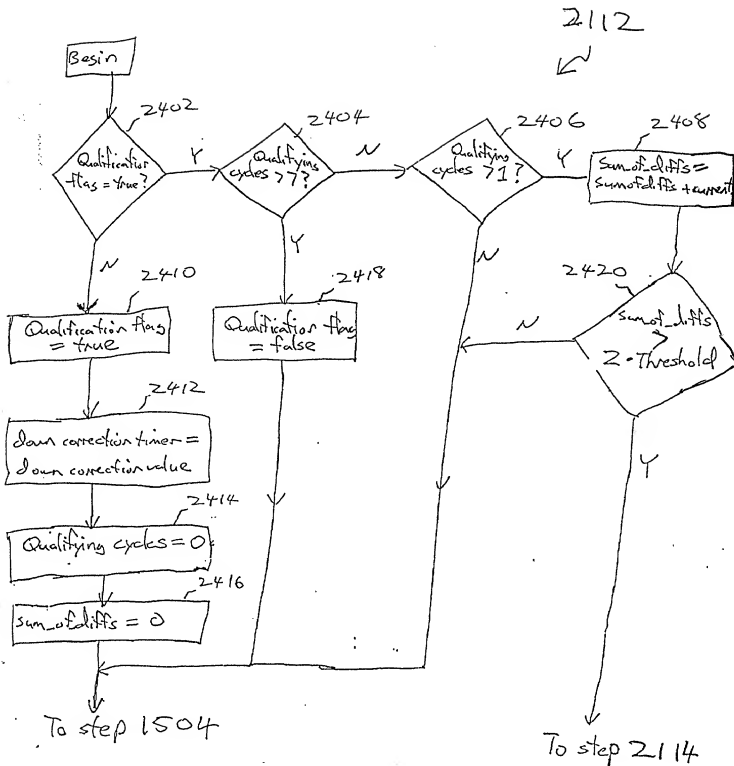 2112
Begin
2402
Qualification
flag = true?
Y
2404
Qualifying
cycles > 7?
N
2406
Qualifying
cycles > 1?
Y
2408
Sum_of_diffs =
Sumofdiffs + current
N
2410
Qualification flag
= true
Y
2418
Qualification flag
= false
N
2420
sumof_diffs
>
2 · Threshold
N
Y
2412
down correction timer =
down correction value
2414
Qualifying cycles = 0
2416
sum_of diffs = 0
To step 1504
To step 2114